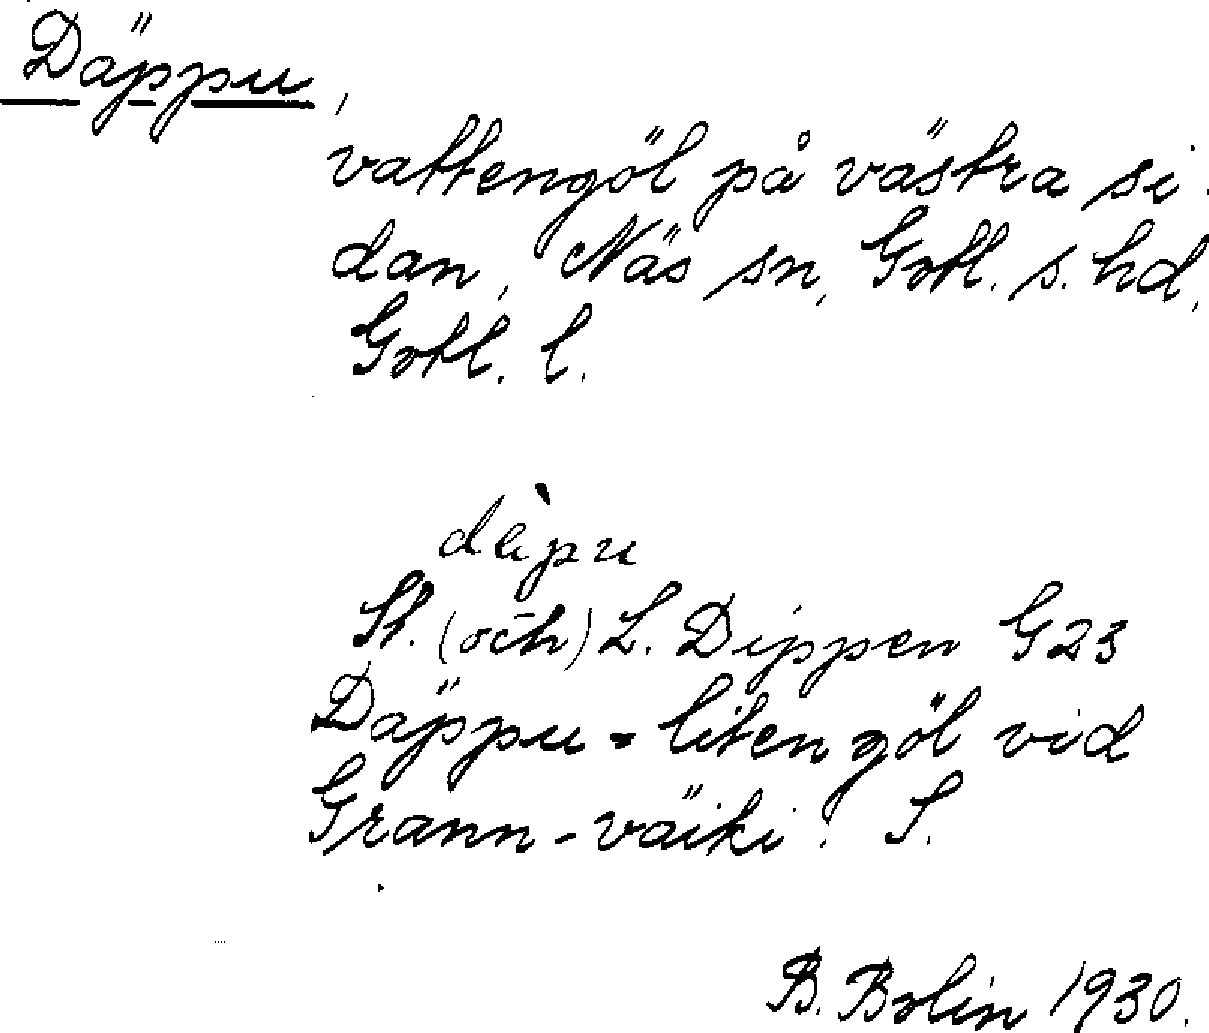 Däppu,
vattengöl på västra si-
dan, Näs sn, Gotl. s. hd,
Gotl. l.
dèpu
St. (och) L. Dippen G23
Däppu = liten göl vid
Grann-väiki. S.
B. Bolin 1930.